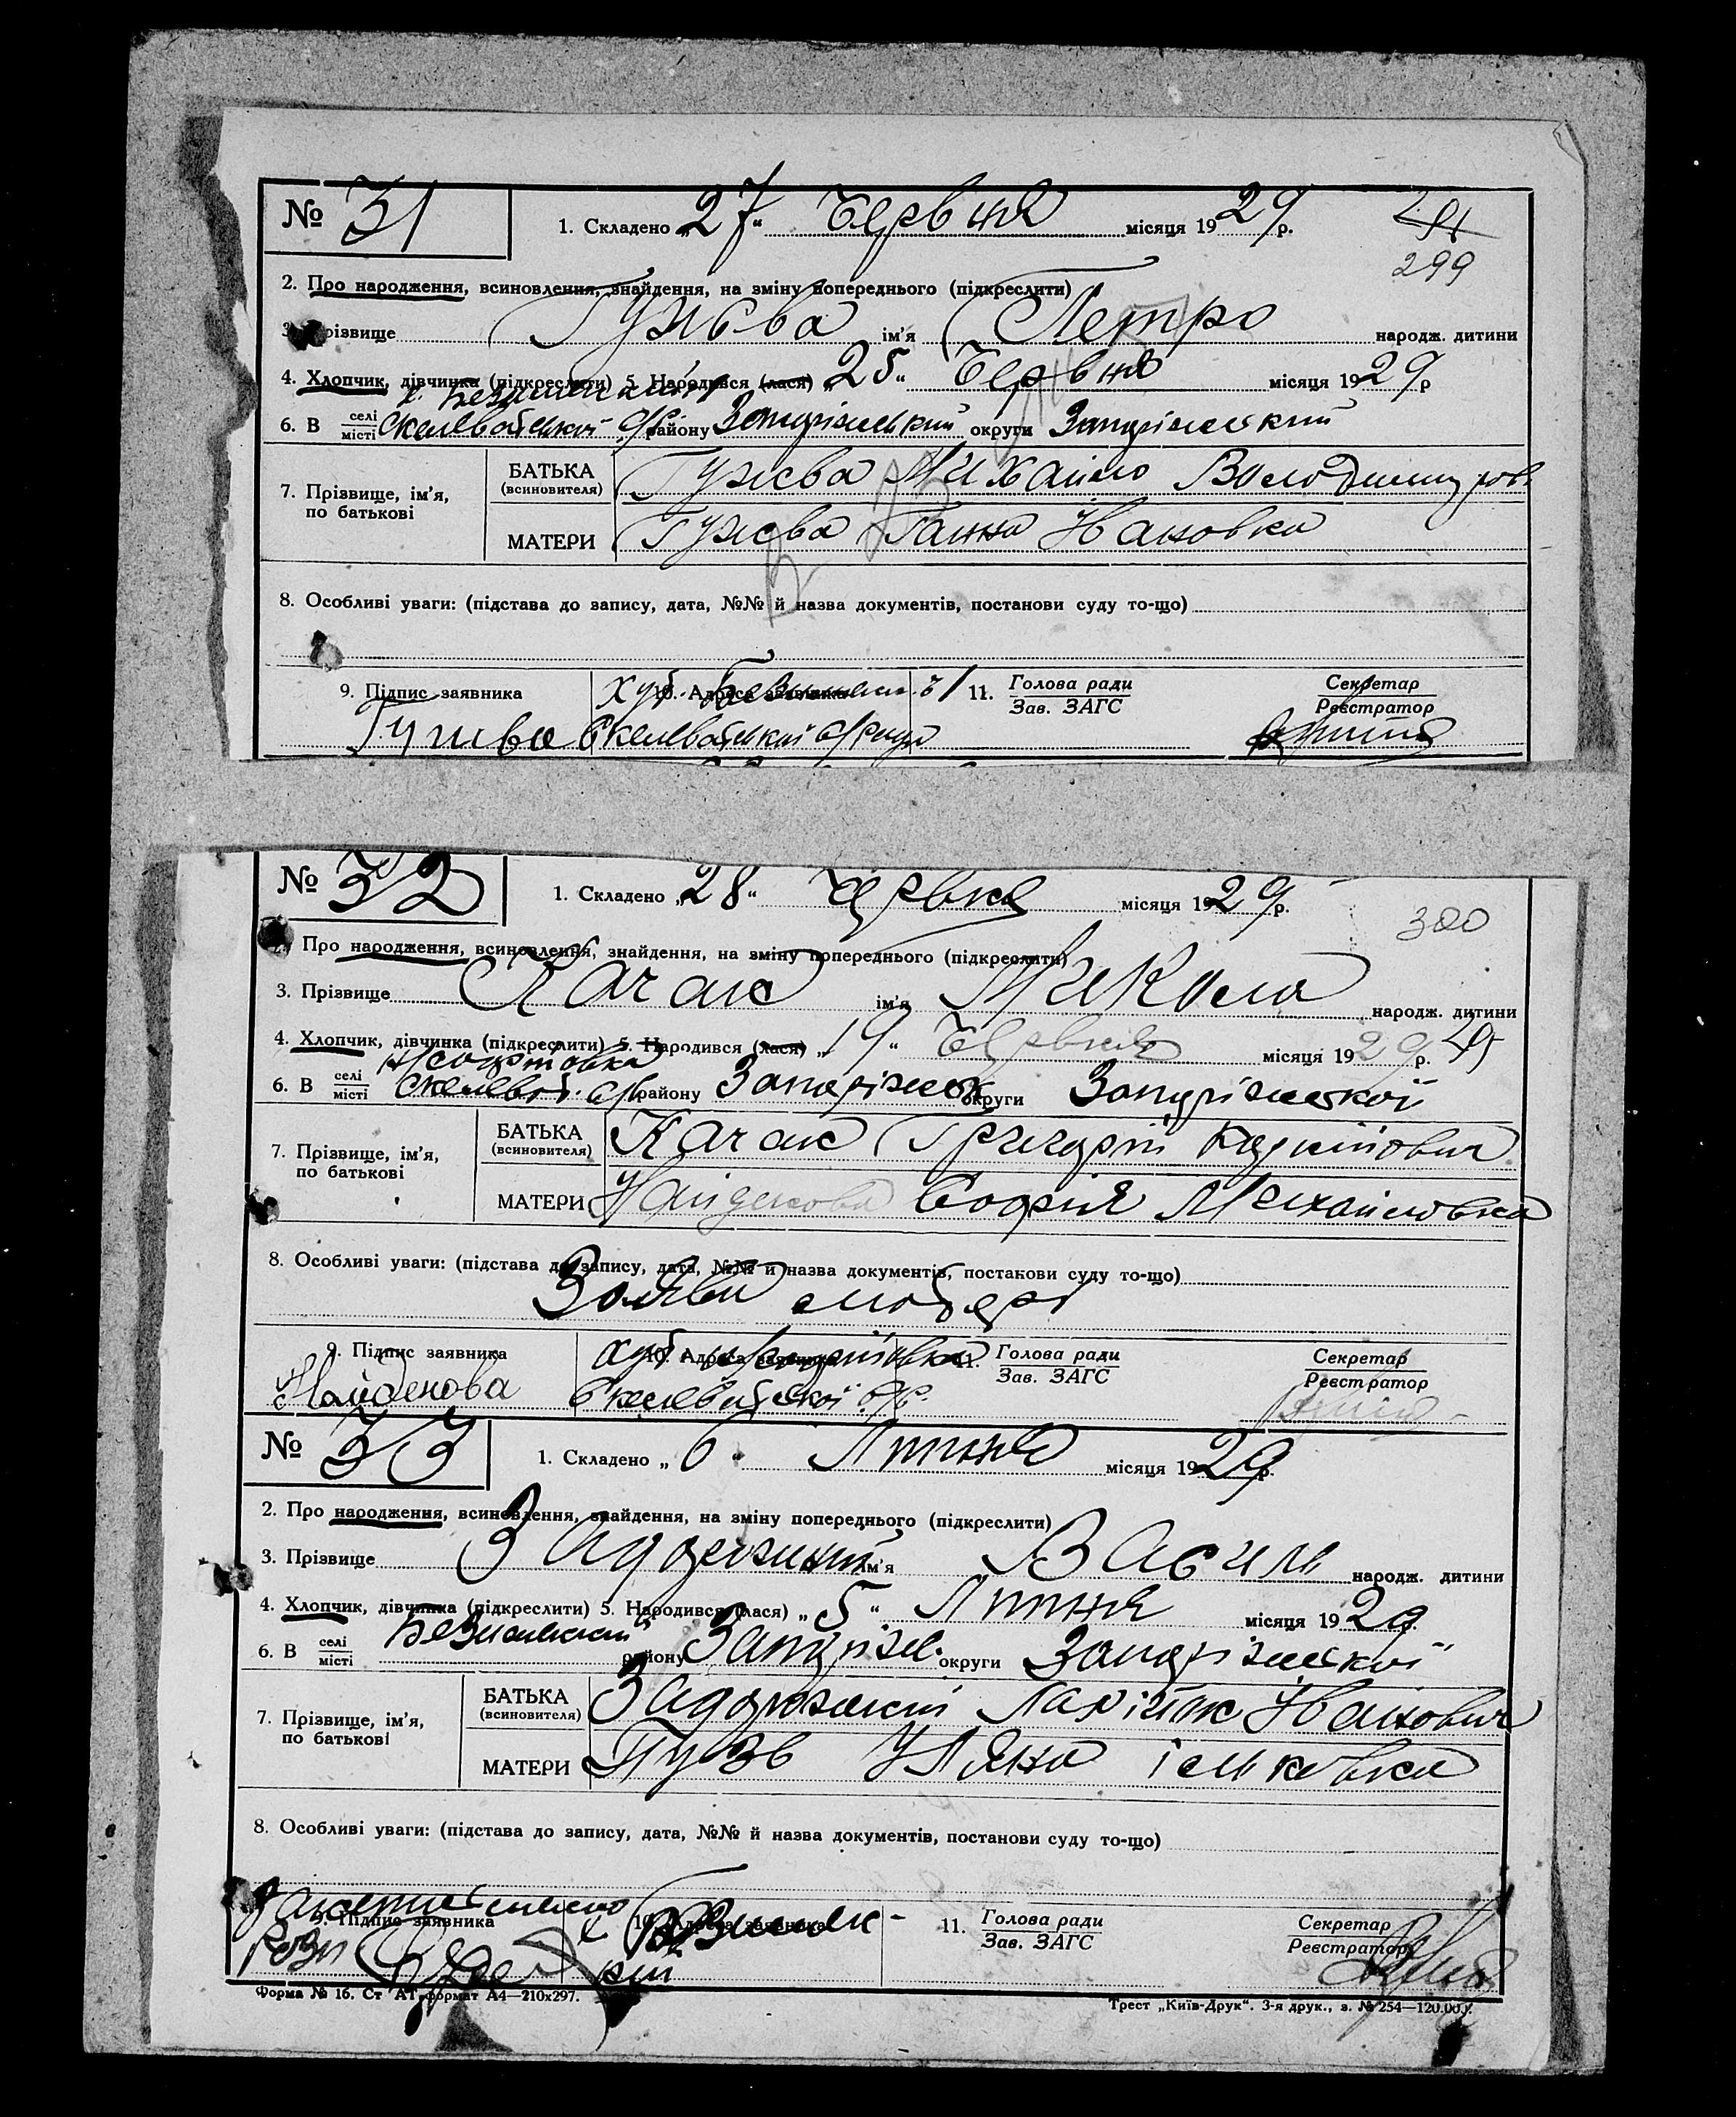 № 31
1. Складено „27“ Червня місяця 1929 р.
299
2. Про народження, всиновлення, знайдення, на зміну попереднього (підкреслити)
3. Прізвище Гужва ім’я Петро народж. дитини
4. Хлопчик, дівчинка (підкреслити) 5. Народився (лася) „25“ Червня місяця 1929 р
6. В селі/місті с/р району Запоріжський округи Запоріжський
7. Прізвище, ім’я, по батькові
БАТЬКА (всиновителя) Гужва Михайло Володимиров.
МАТЕРИ Гужва Ганна Івановна
8. Особливі уваги: (підстава до запису, дата, №№ й назва документів, постанови суду то-що)
9. Підпис заявника 10. Адреса заявника 11. Голова ради Секретар
Зав. ЗАГС Реєстратор
Гужва
№ 32
1. Складено „28“ Червня місяця 1929 р.
300
2. Про народження, всиновлення, знайдення, на зміну попереднього (підкреслити)
3. Прізвище Качан ім’я Микола народж. дитини
4. Хлопчик, дівчинка (підкреслити) 5. Народився (лася) „19“ Червня місяця 1929 р.
6. В селі/місті с/р району Запоріжськ округи Запоріжської
7. Прізвище, ім’я, по батькові
БАТЬКА (всиновителя) Качан Григорій
МАТЕРИ Найденова Софія Михайловна
8. Особливі уваги: (підстава до запису, дата, №№ й назва документів, постанови суду то-що)
Заява матері
9. Підпис заявника 10. Адреса заявника 11. Голова ради Секретар
Зав. ЗАГС Реєстратор
Найденова
№ 33
1. Складено „6“ Липня місяця 1929 р.
2. Про народження, всиновлення, знайдення, на зміну попереднього (підкреслити)
3. Прізвище Задорожній ім’я Василь народж. дитини
4. Хлопчик, дівчинка (підкреслити) 5. Народився (лася) „5“ Липня місяця 1929 р.
6. В селі/місті району Запоріж. округи Запоріжської
7. Прізвище, ім’я, по батькові
БАТЬКА (всиновителя) Задорожній Іванович
МАТЕРИ Пузь Уляна
8. Особливі уваги: (підстава до запису, дата, №№ й назва документів, постанови суду то-що)
9. Підпис заявника 10. Адреса заявника 11. Голова ради Секретар
Зав. ЗАГС Реєстратор
Форма № 16. Ст АТ, формат А4—210х297. Трест „Київ-Друк“. 3-я друк., з. № 254—120.000.